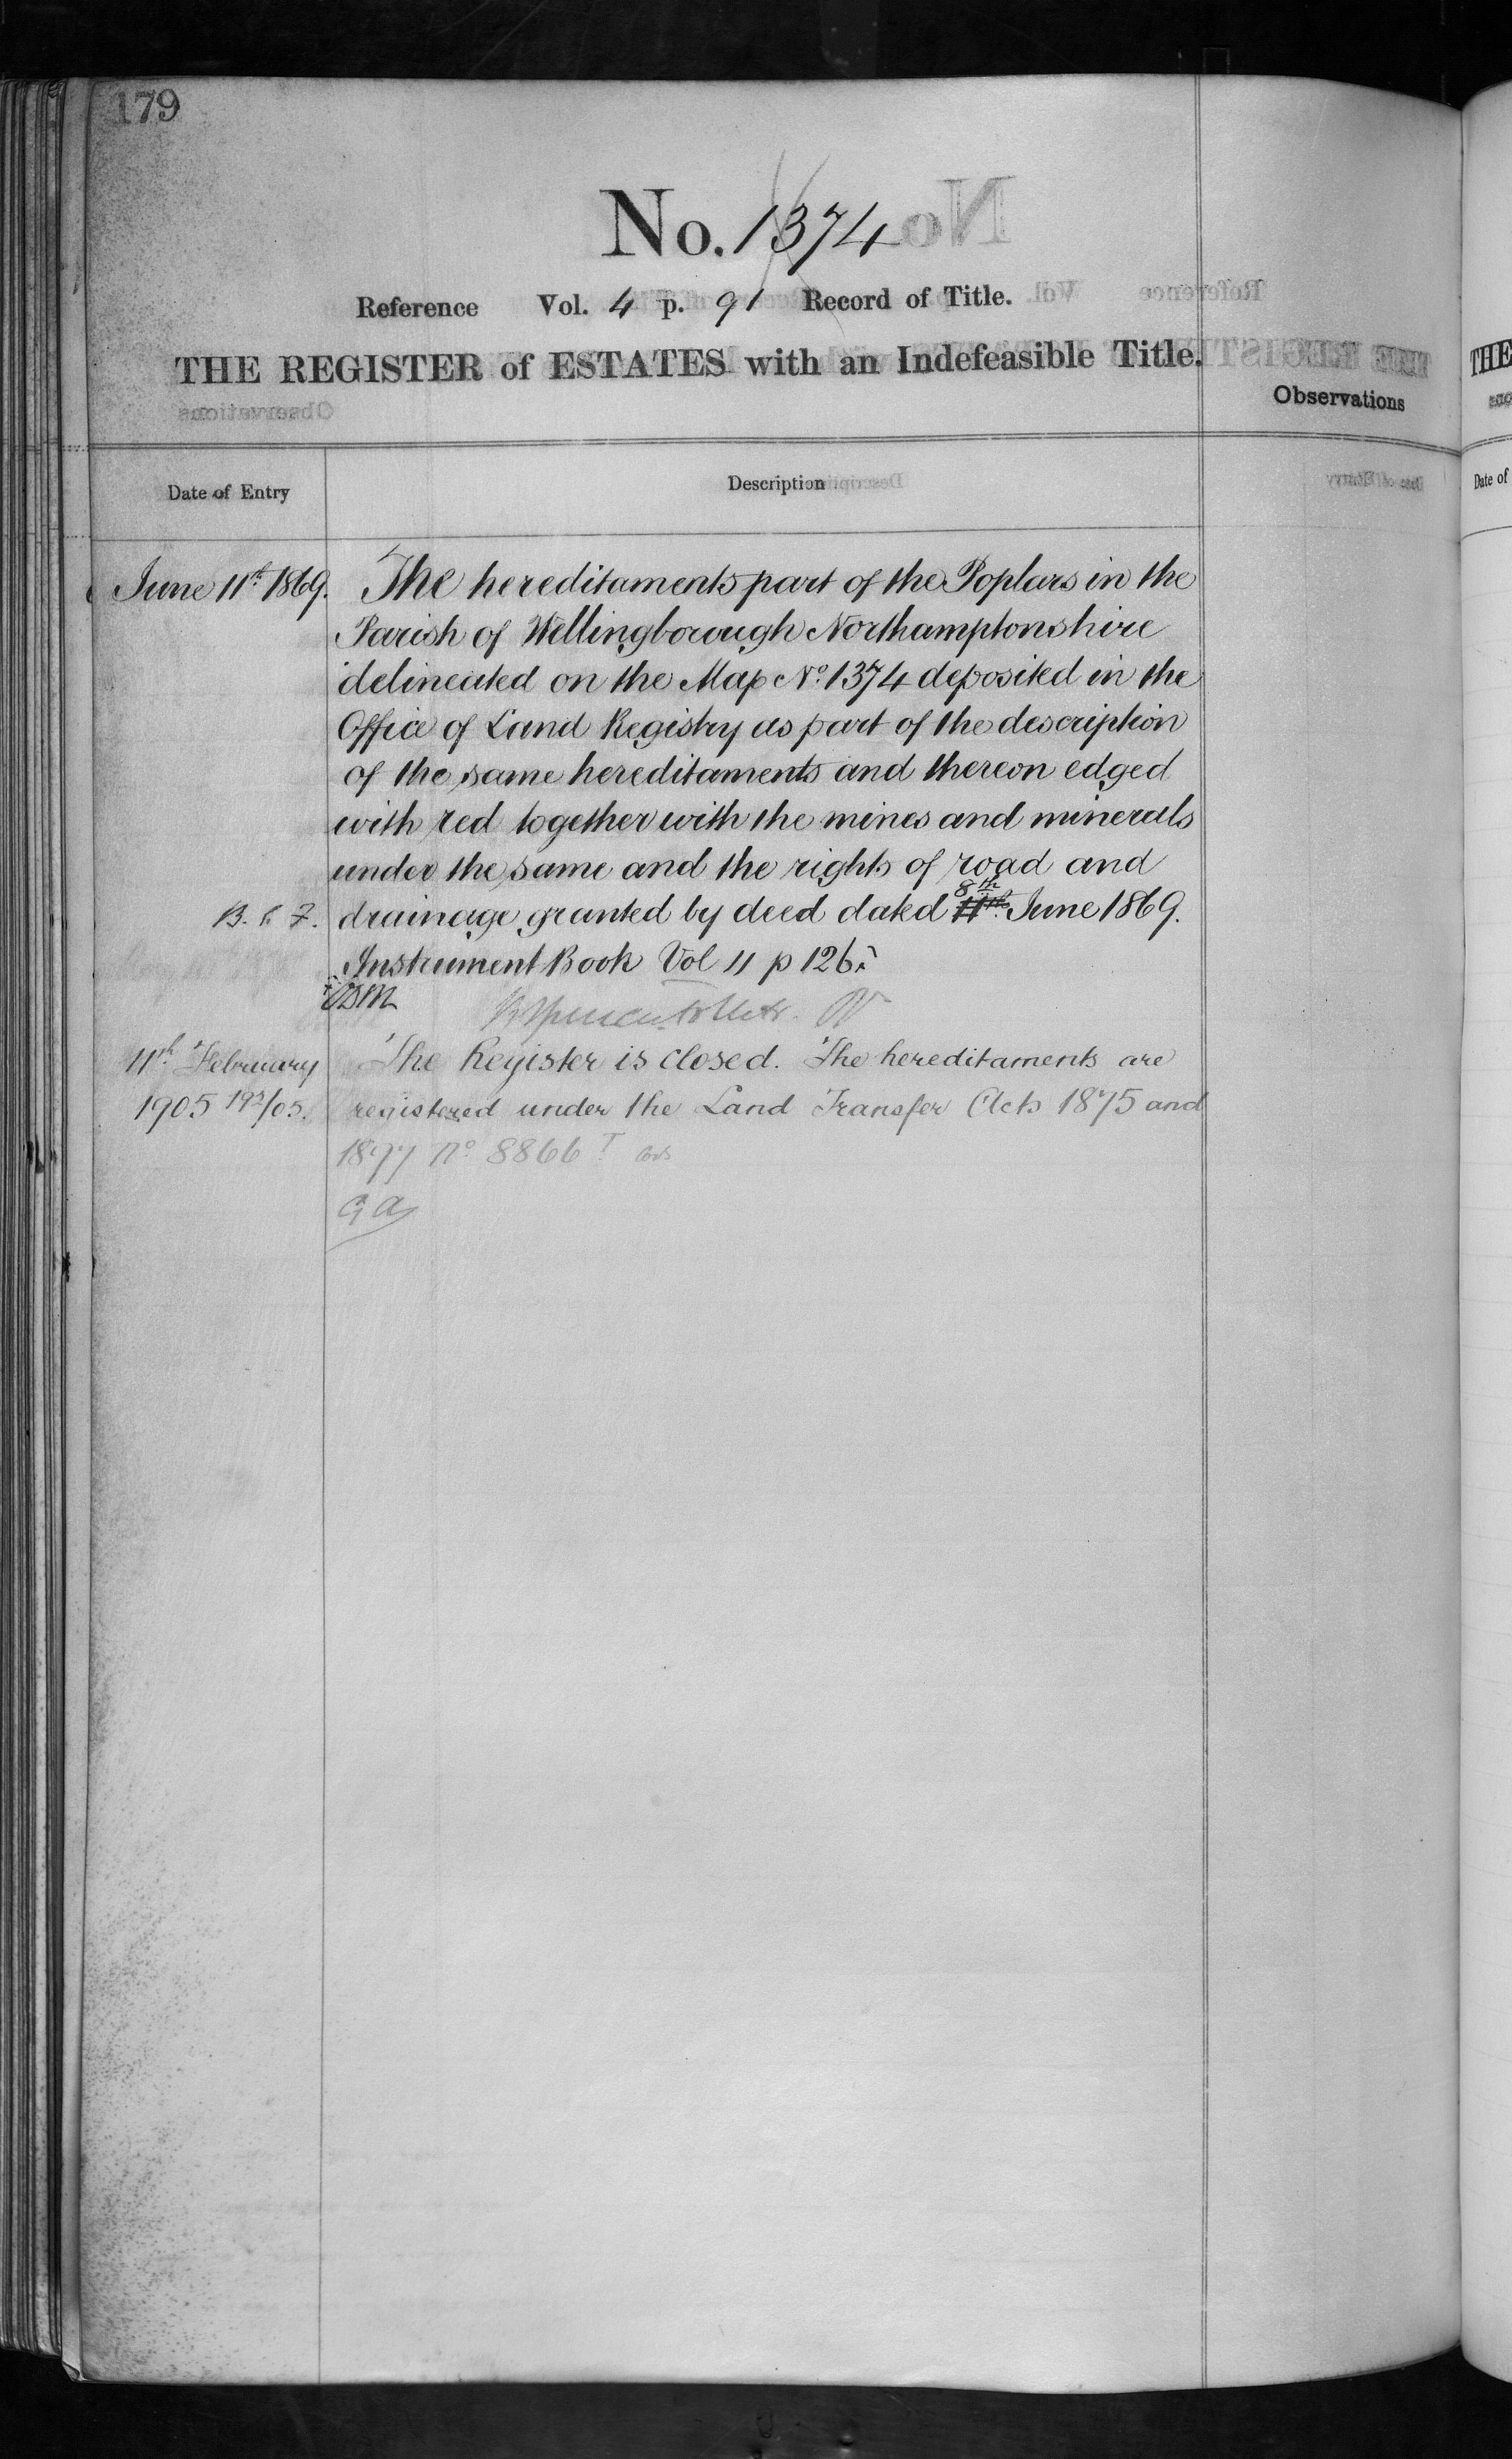 179
No. 1374
Reference Vol. 4 p. 91 Record of Title.
THE REGISTER of ESTATES with an Indefeasible Title.
Observations
Date of Entry
Description
June 11th 1869.
The hereditaments part of the Poplars in the
Parish of Wellingborough Northamptonshire
delineated on the Map No. 1374 deposited in the
Office of Land Registry as part of the description
of the same hereditaments and thereon edged
with red together with the mines and minerals
under the same and the rights of road and
drainage granted by deed dated 8th 11th June 1869.
Instrument Book Vol 11 p 126
11th February
1905 192/05.
The Register is closed. The hereditaments are
registered under the Land Transfer Acts 1875 and
1897 No 8866
GA
THE
Date of